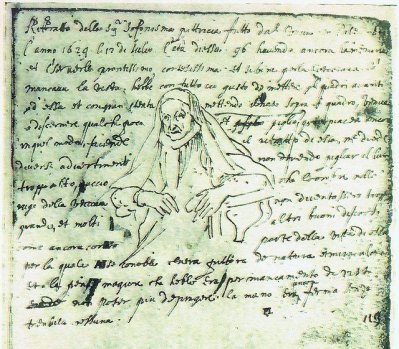 Rittratto della Sigra Sofonisma pittricia fatto dal vivo in Pale
l'anno 1629 li 12 di Julio l'età di essa 96 havendo ancora la memoria
et il cervello prontissimo cortesissima et sebene per la vecciaia
mancava la vista, hebbe con tutto cio gusto de mettere gli quadri avanti
ad essa et con gran stenta mettendo il naso sopra il quadro, venne
a discernere qualche poca et piglio gran piacere ancora
in quel modo, facendo il ritratto di essa, me diede
diversi advertimenti non devendo pigliar il lume
troppo alto, accio che le ombre nelle
ruge della vecciaia non diventassero troppo
grande, et molti altri buoni discorsi
come ancora conto parte della vita di essa
per la quale si conobbe che era pittora de natura et miraculosa
et la pena magiore che hebbe era per mancamento di vista
non poter piu dipingere. la mano era ferma senza
tremula nessuna.
118